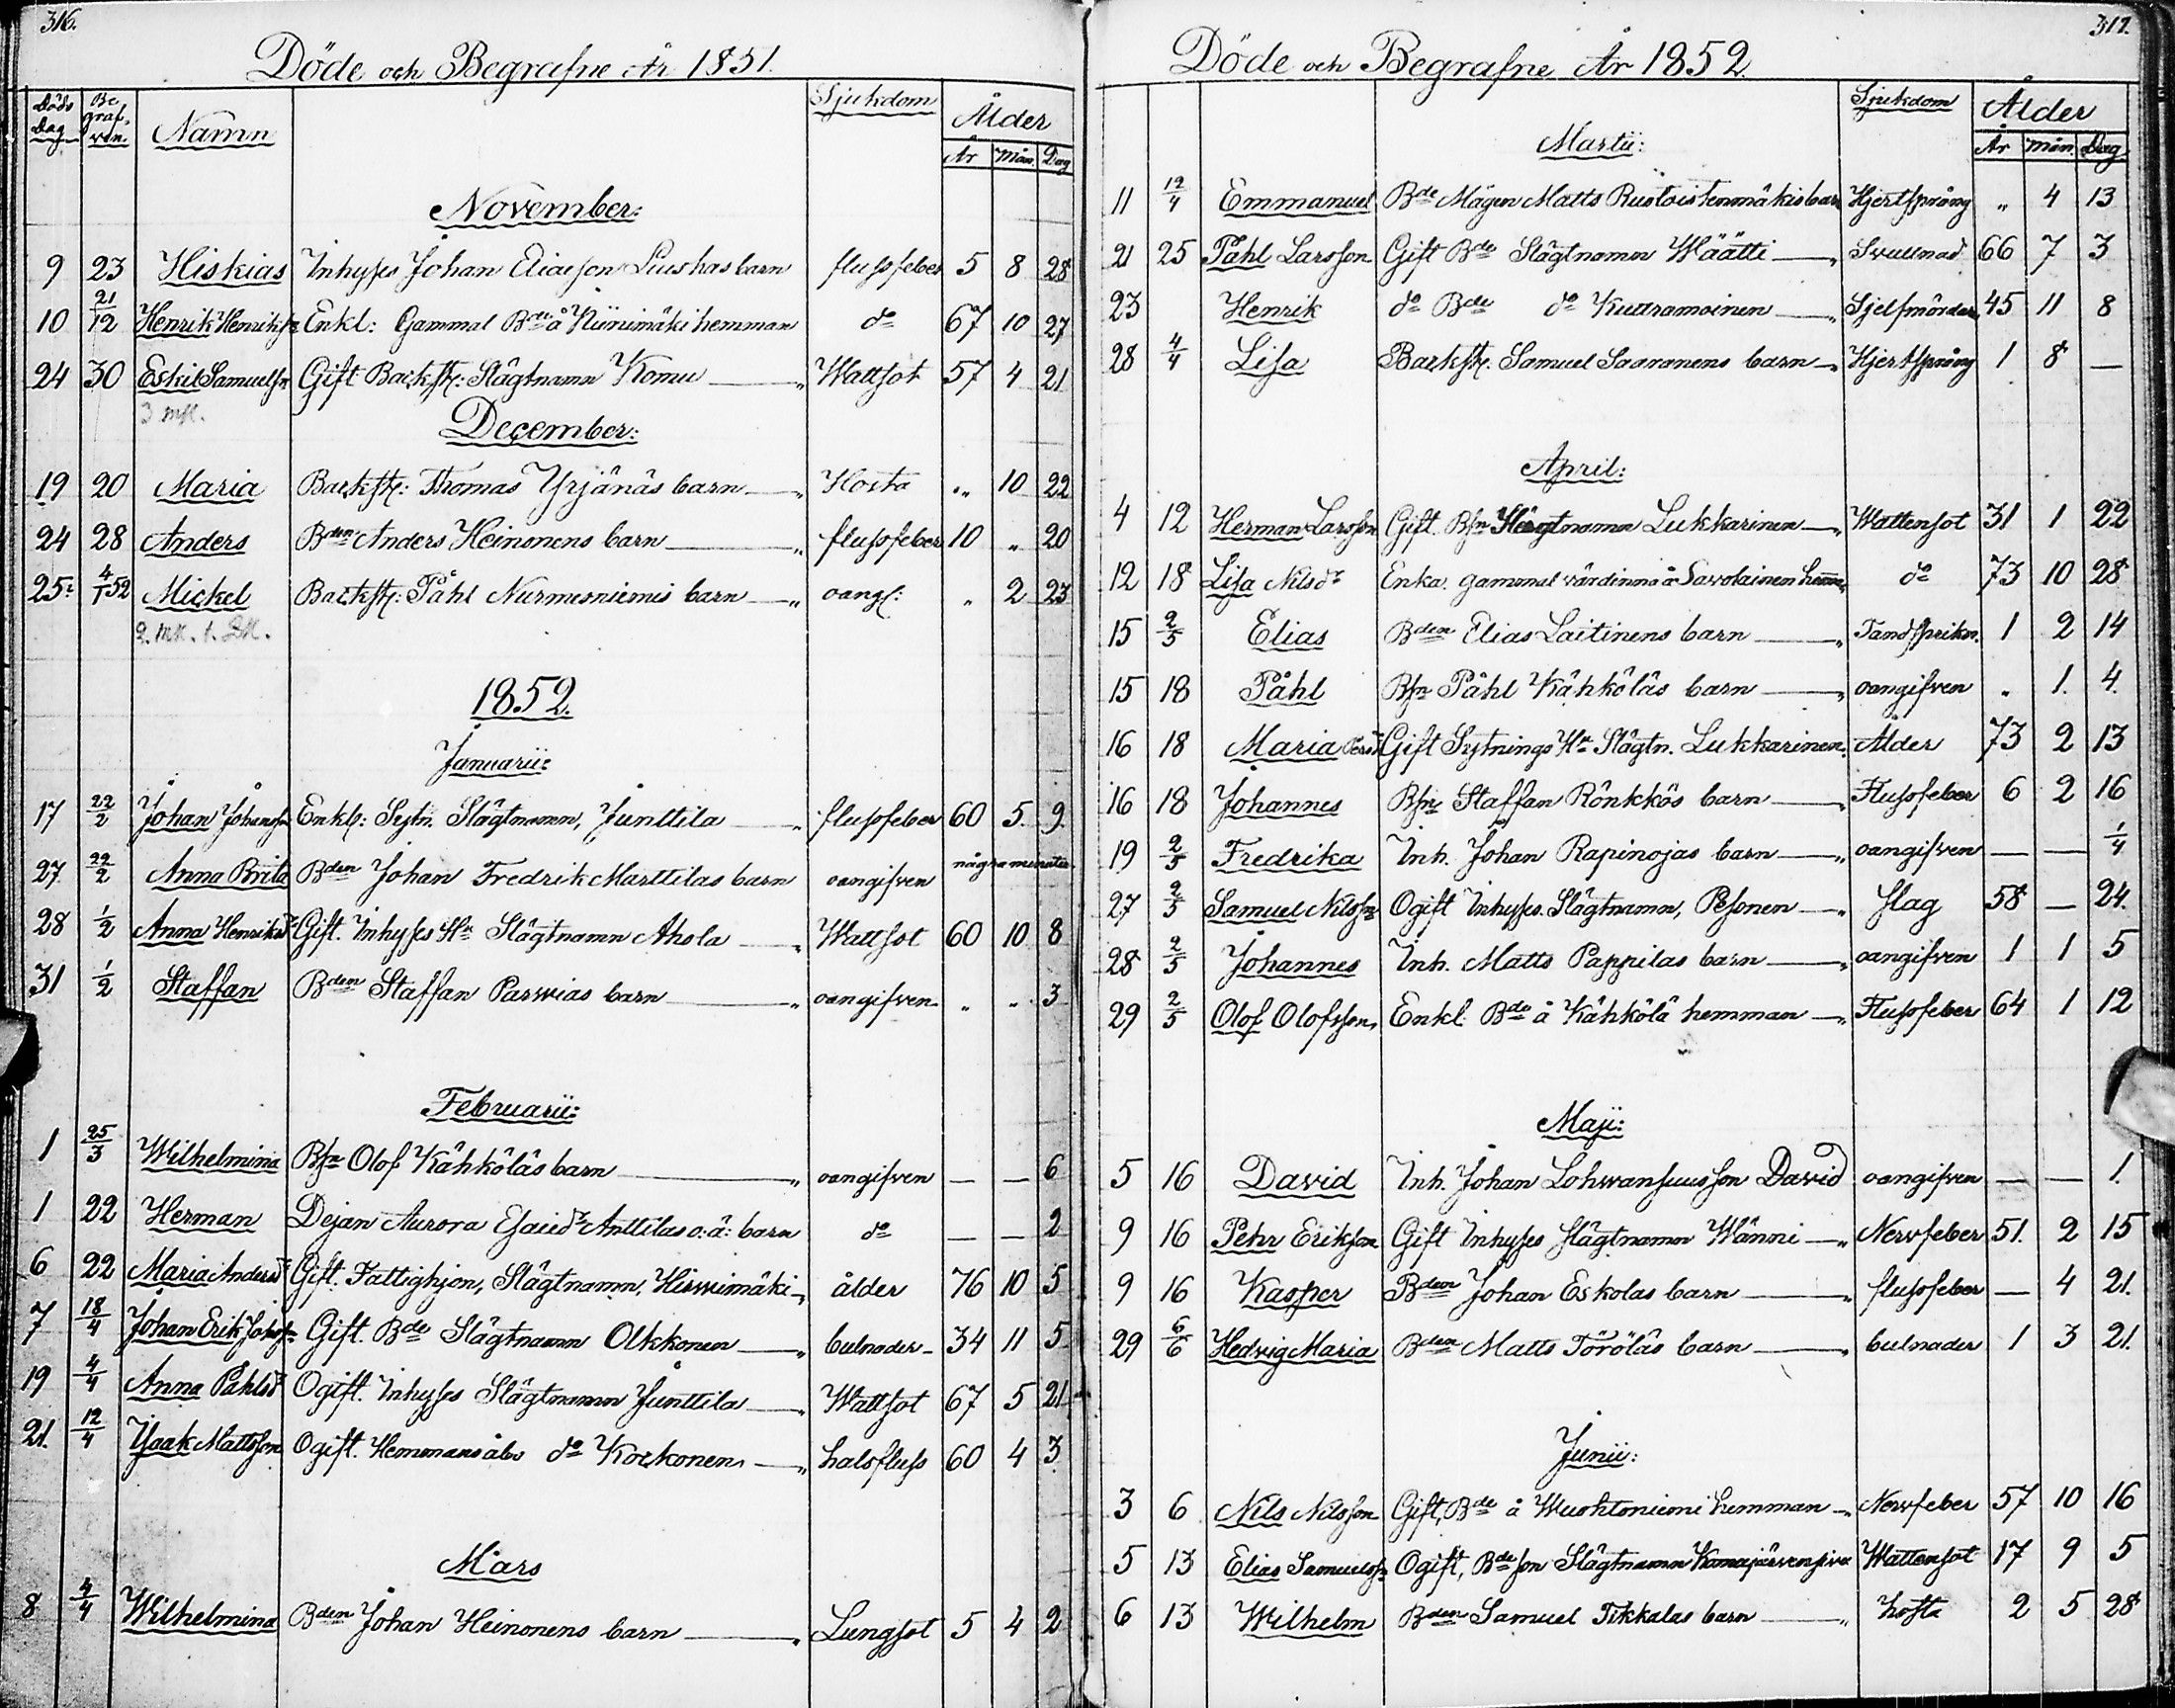 316.
Döde och Begrafne År 1851.
Döds Dag Be graf. ven. Namn Sjukdom Ålder
År Mån. Dag
November:
9 23 Hiskias Inhyses Johan Eliaeson Luukas barn flussfeber 5 8 28
10 21/12 Henrik Henrikss: Enkl: Gammal Bde å Niinimäki hemman do 67 10 27
24 30 Eskil Samuelsn Gift Backst: Slägtnamn Komu Wattsot 57 4 21
3 mk.
December:
19 20 Maria Backst: Thomas Yrjänäs barn Hosta „ 10 22
24 28 Anders Bden Anders Heinonens barn flussfeber 10 „ 20
25: 4/1 52 Mickel Backst: Påhl Nurmesniemis barn oang: „ 2 23
2. mk. 1. QK.
1852.
Januarii:
17 22/2 Johan Johanss Enkl: Sytn. Slägtnamn, Junttila flussfeber 60 5. 9.
27. 22/2 Anna Brita Bden Johan Fredrik Marttilas barn oangifven några minuter.
28 1/2 Anna Henriksdr Gift. Inhyses Hu Slägtnamn Ahola Wattsot 60 10 8
31 1/2 Staffan Bden Staffan Parwias barn oangifven „ „ 3
Februarii:
1 25/3 Wilhelmina Bsn Olof Kähköläs barn oangifven — — 6
1 22 Herman Dejan Aurora Esaiedr Anttilas o: ä: barn do — — 2
6 22 Maria Andersdr Gift. Fattighjon, Slägtnamn, Hirwimäki ålder 76 10 5
7 18/4 Johan Erik Johss Gift. Bde Slägtnamn Olkkonen bulnader 34 11 5
19 4/4 Anna Påhlsdr Ogift. Inhyses Slägtnamn Junttila Wattsot 67 5 21
21. 12/4 Isaak Mattsson Ogift. Hemmansåbo do Korkonen halsfluss 60 4 3
Mars
8 4/4 Wilhelmina Bden Johan Heinonens barn Lungsot 5 4 2
317.
Döde och Begrafne År 1852.
Sjukdom Ålder
År Mån. Dag
Martii:
11 12/4 Emmanuel Bde Mågen Matts barn Hjertsprång „ 4 13
21 25 Påhl Larsson Gift Bde Slägtnamn Määtti Svullnad 66 7 3
23 Henrik do Bde do Kuttramoinen Sjelfmördare 45 11 8
28 4/4 Lisa Backst. Samuel Saaranens barn Hjertsprång 1 8 —
April:
4 12 Herman Larsson Gift. Bsn Slägtnamn Lukkarinen Wattensot 31 1 22
12 18 Lisa Nilsdr Enka. gammal värdinna å Savolainen hemm. do 73 10 28
15 2/5 Elias Bden Elias Laitinens barn Tandsprikn. 1 2 14
15 18 Påhl Bsn Påhl Kähköläs barn oangifven „ 1. 4.
16 18 Maria Gift Sytnings Hu Slägtn. Lukkarinen Ålder 73 2 13
16 18 Johannes Bsn Staffan Rönkkös barn Flussfeber 6 2 16
19 2/5 Fredrika Inh. Johan Rapinojas barn oangifven — — 1/4
27 2/5 Samuel Nilssn Ogift Inhyses. Slägtnamn, Pesonen slag 58 — 24.
28 2/5 Johannes Inh. Matts Pappilas barn oangifven 1 1 5
29 2/5 Olof Olofsson Enkl. Bde å Kähkölä hemman Flussfeber 64 1 12
Maji:
5 16 David Inh. Johan Lohwansuus son David oangifven — — 1.
9 16 Pehr Erikson Gift Inhyses Slägtnamn Wänni Nervfeber 51. 2 15
9 16 Kasper Bden Johan Eskolas barn flussfeber — 4 21.
29 6/6 Hedvig Maria Bden Matts Töröläs barn bulnader 1 3 21.
Junii:
3 6 Nils Nilsson Gift, Bde å Wuohtoniemi hemman Nervfeber 57 10 16
5 13 Elias Samuelss Ogift, Bde son Slägtnamn Wattensot 17 9 5
6 13 Wilhelm Bden Samuel Tikkalas barn hosta 2 5 28